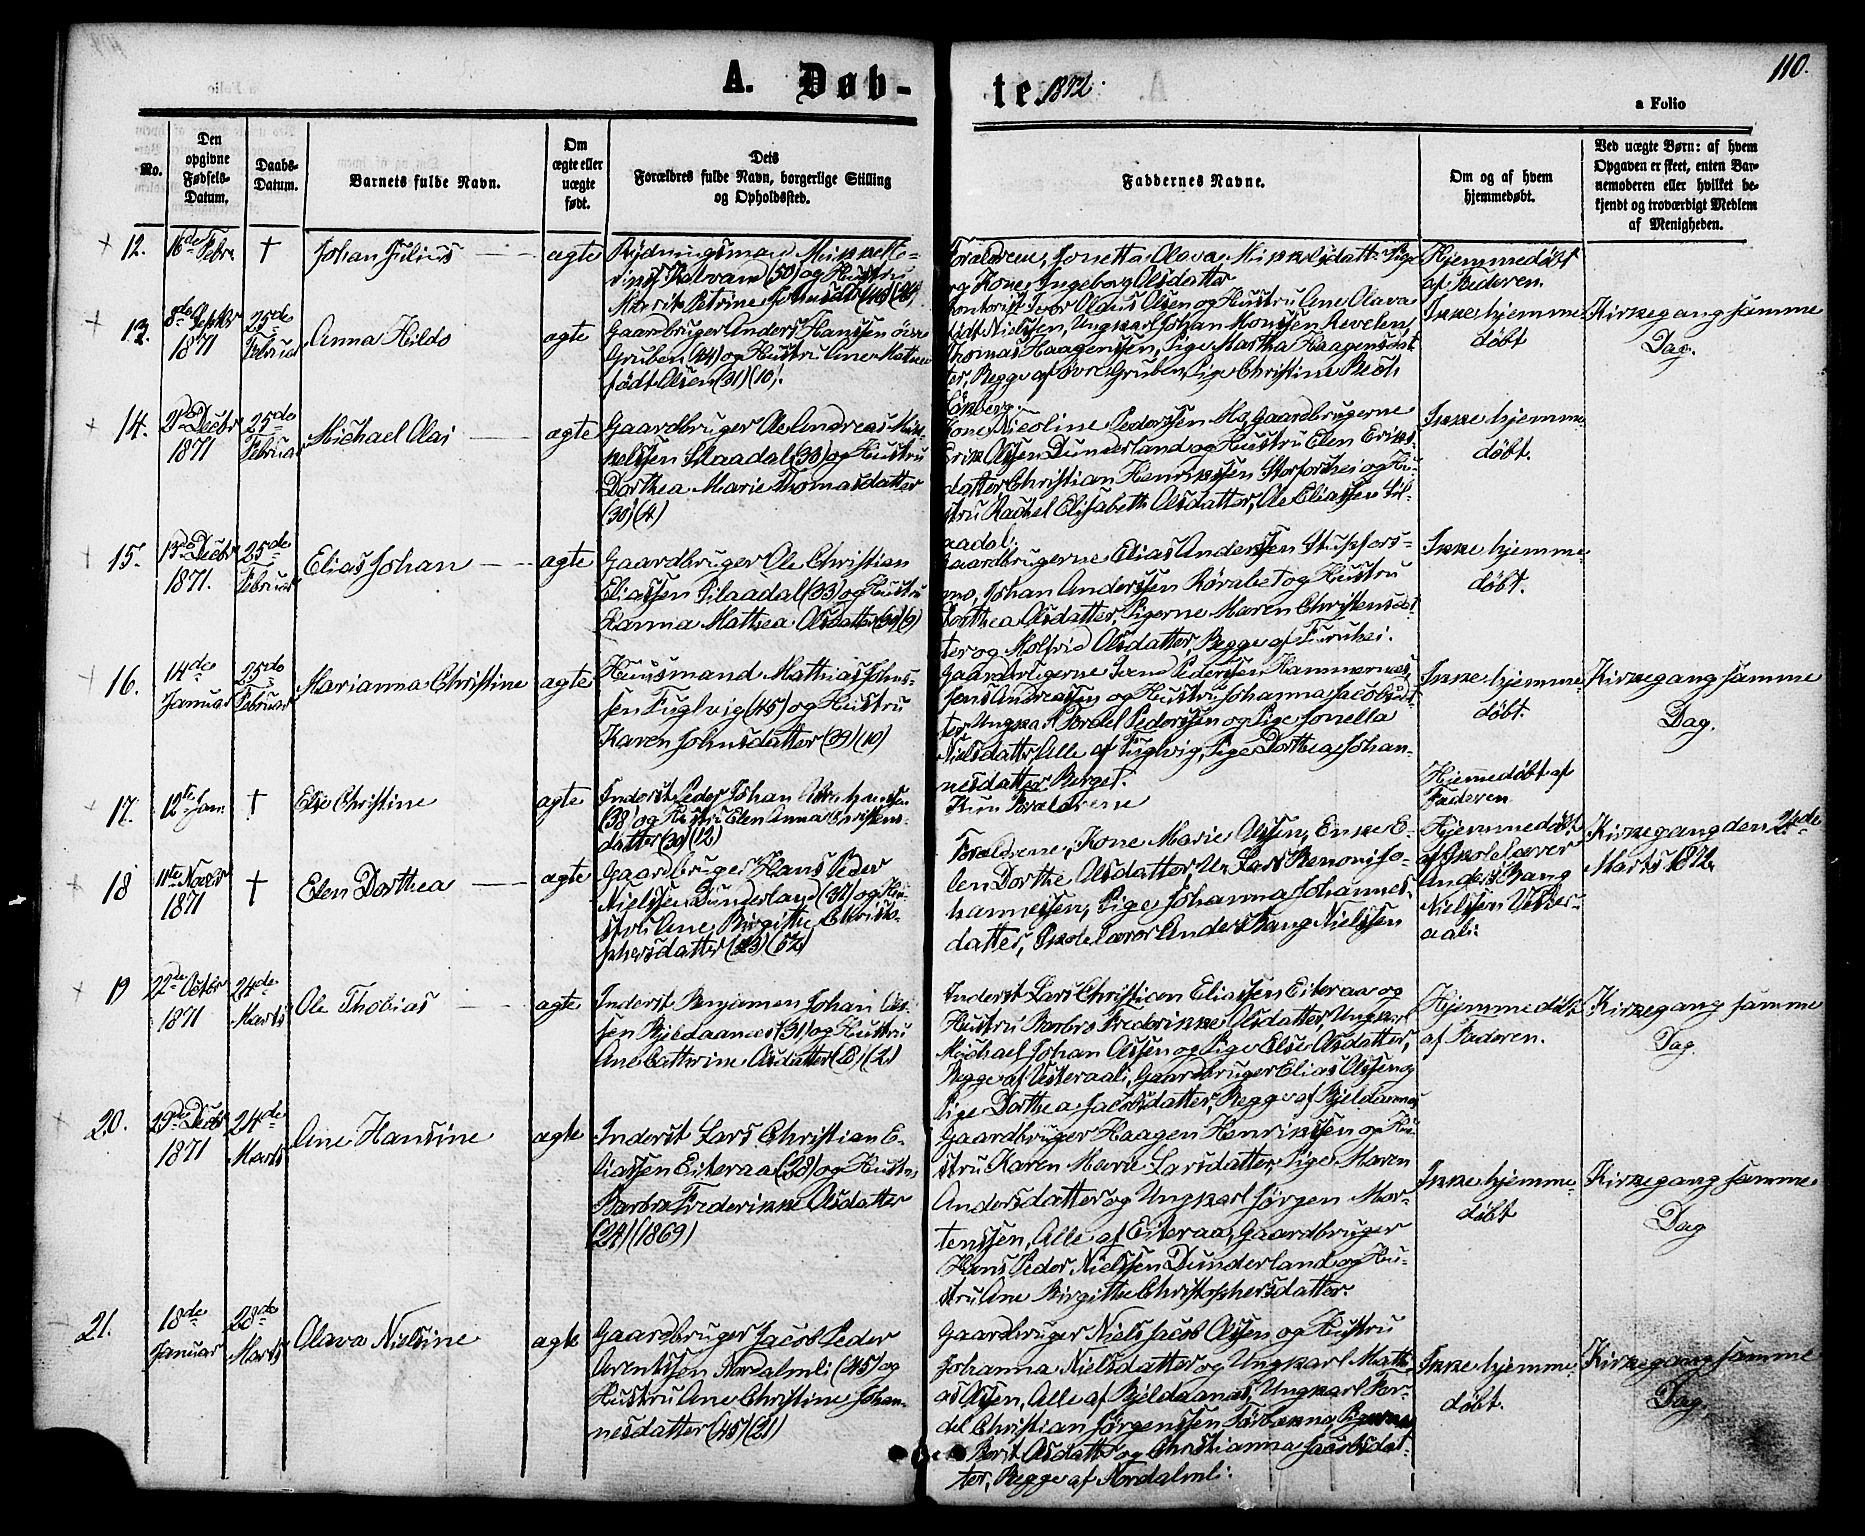 110.
A. Døb-
te. 1872.
a Folio
No.
Den opgivne Fødsels-Datum.
Daabs-Datum.
Barnets fulde Navn.
Om ægte eller uægte født.
Dets
Forældres fulde Navn, borgerlige Stilling
og Opholdssted.
Faddernes Navne.
Om og af hvem
hjemmedøbt.
Ved uægte Børn: af hvem
Opgaven er skeet, enten Bar-
nemoderen eller hvilket be-
kjendt og troværdigt Medlem
af Menigheden.
12. 16de Febr. † Johan Julius ægte
Rydningsmand Mikkel
(50) og Hustru
Forældrene, Jonetta Olava Mikkelsdatter Pige
og Kone Ingeborg Olsdatter
Hjemmedøbt
af Faderen.
13. 8de Septbr 1871 25de Februar Anna Hilda ægte
Gaardbruger Anders Hanssen øvre
Gruben (34) og Hustru Ane Martine
født Olsen (31) (10).
Kontorist Peder Olaus Olsen og Hustru Ane Olava
født Nielssen, Ungkarl Johan Monssen Revelen,
Thomas Haagenssen, Pige Martha Haagensdat-
ter, Begge af øvre Gruben, Pige Christine Bech
Ikke hjemme
døbt
Kirkegang samme
Dag.
14. Decbr 1871 25de Februar Michael Olai ægte
Gaardbruger Ole Andreas Mik-
kelssen (30) og Hustru
Dorthea Marie Thomasdatter
(30) (4)
Kone Nicoline Pederssen Mo, Gaardbrugerne
Erik Olssen Dunderland og Hustru Elen Eriks-
datter Christian Henrikssen Storforshei og Hu-
stru Rachel Elisabeth Olsdatter, Ole Eliassen Sil-
aadal.
Ikke hjemme
døbt.
15. 13de Decbr 1871. 25de Februar Elias Johan ægte
Gaardbruger Ole Christian
Eliassen Silaadal (33) og Hustru
Hanna Mathea Olsdatter (9)
Gaardbrugerne Elias Anderssen Stupfors-
mo, Johan Anderssen Røvabet og Hustru
Dorthea Olsdatter, Pigerne Maren Christensdat-
ter og Molfrid Olsdatter, Begge af Furuhei.
Ikke hjemme
døbt.
16. 14de Januar 25de Februar Marianna Christine ægte
Huusmand Mathias Johns-
sen Fuglvig (45) og Hustru
Karen Johnsdatter (39) (10)
Gaardbrugerne Pederssen Hammernes,
Jens Andreassen og Hustru Johanna Jacobsdat-
ter, Ungkarl Tordel Pederssen og Pige Jonella
Nielsdatter, Alle af Fuglvig, Pige Dorthea Johan-
nesdatter Berget.
Ikke hjemme-
døbt.
Kirkegang samme
Dag.
17. 12te Jan. † Else Christine ægte
Inderst Peder Johan Abrahamssen
(38) og Hustru Elen Anna Christens-
datter (30) (12)
Kun Forældrene
Hjemmedøbt af
Faderen
18 11te Novbr 1871 † Elen Dorthea ægte
Gaardbruger Hans Peder
Nielssen Dunderland og Hu-
stru Ane Birgitte Christo-
phersdatter
Forældrene, Kone Marie Olssen, Enke E-
len Dorthe Olsdatter, U. Lars Benoni Jo-
hannessen, Pige Johanna Johannes-
datter, Skolelærer Anders Bang Nielssen
Hjemmedøbt
af Skolelærer
Anders Bang
Nielssen Vester-
aali.
Kirkegang den 24de
Marts 1872.
19 22de Octbr 1871 24de Marts Ole Thobias ægte
Inderst Benjamen Johan Ols-
sen Bjeldaanæs (31) og Hustru
Ane Cathrine Olsdatter
Inderst Lars Christian Eliassen Eiteraa og
Hustru Barbra Frederikke Olsdatter, Ungkarl
Michael Johan Olssen og Pige Else Olsdatter,
Begge af Vesteraali, Gaardbruger Elias Olssen og
Pige Dorthea Jacobsdatter, Begge af Bjeldaanæs
Hjemmedøbt
af Faderen.
Kirkegang samme
Dag.
20. 29de Decbr 1871 24de Marts Ane Hansine ægte
Inderst Lars Christian E-
liassen Eiteraa (28) og Hustru
Barbra Frederikke Olsdatter
(24) (1869)
Gaardbruger Haagen Henrikssen og Hu-
stru Karen Marie Larsdatter, Pige Maren
Andersdatter og Ungkarl Jørgen Mor-
tenssen, Alle af Eiteraa, Gaardbruger
Hans Peder Nielssen Dunderland og Hu-
stru Ane Birgitthe Christophersdatter.
Ikke hjemme-
døbt
Kirkegang samme
Dag
21. 18de Januar 28de Marts Olava Nielsine ægte
Gaardbruger Jacob Peder
Arentssen Nordalmli (45) og
Hustru Ane Christine Johan-
nesdatter (45) (21)
Gaardbruger Niels Jacob Olssen og Hustru
Johanna Nielsdatter og Ungkarl Mathi-
as Olssen, Alle af Bjeldaanæs, Ungkarl Tor-
del Christian Jørgenssen
Berit Olsdatter og Christianna Jacobsdat-
ter, Begge af Nordalmli.
Ikke hjemme-
døbt.
Kirkegang samme
Dag.